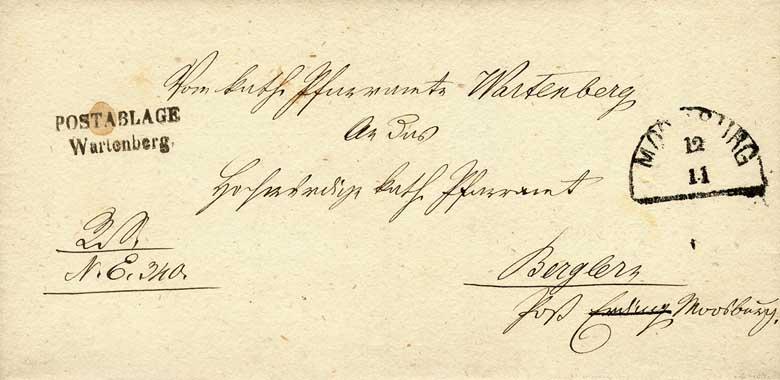 Vom kath. Pfarramte Wartenberg
POSTABLAGE
Wartenberg.
An das
MOOSBURG
12
11
Hochwürdige kath. Pfarramt
N. E. 340.
Berglern
Post Erding Moosburg.